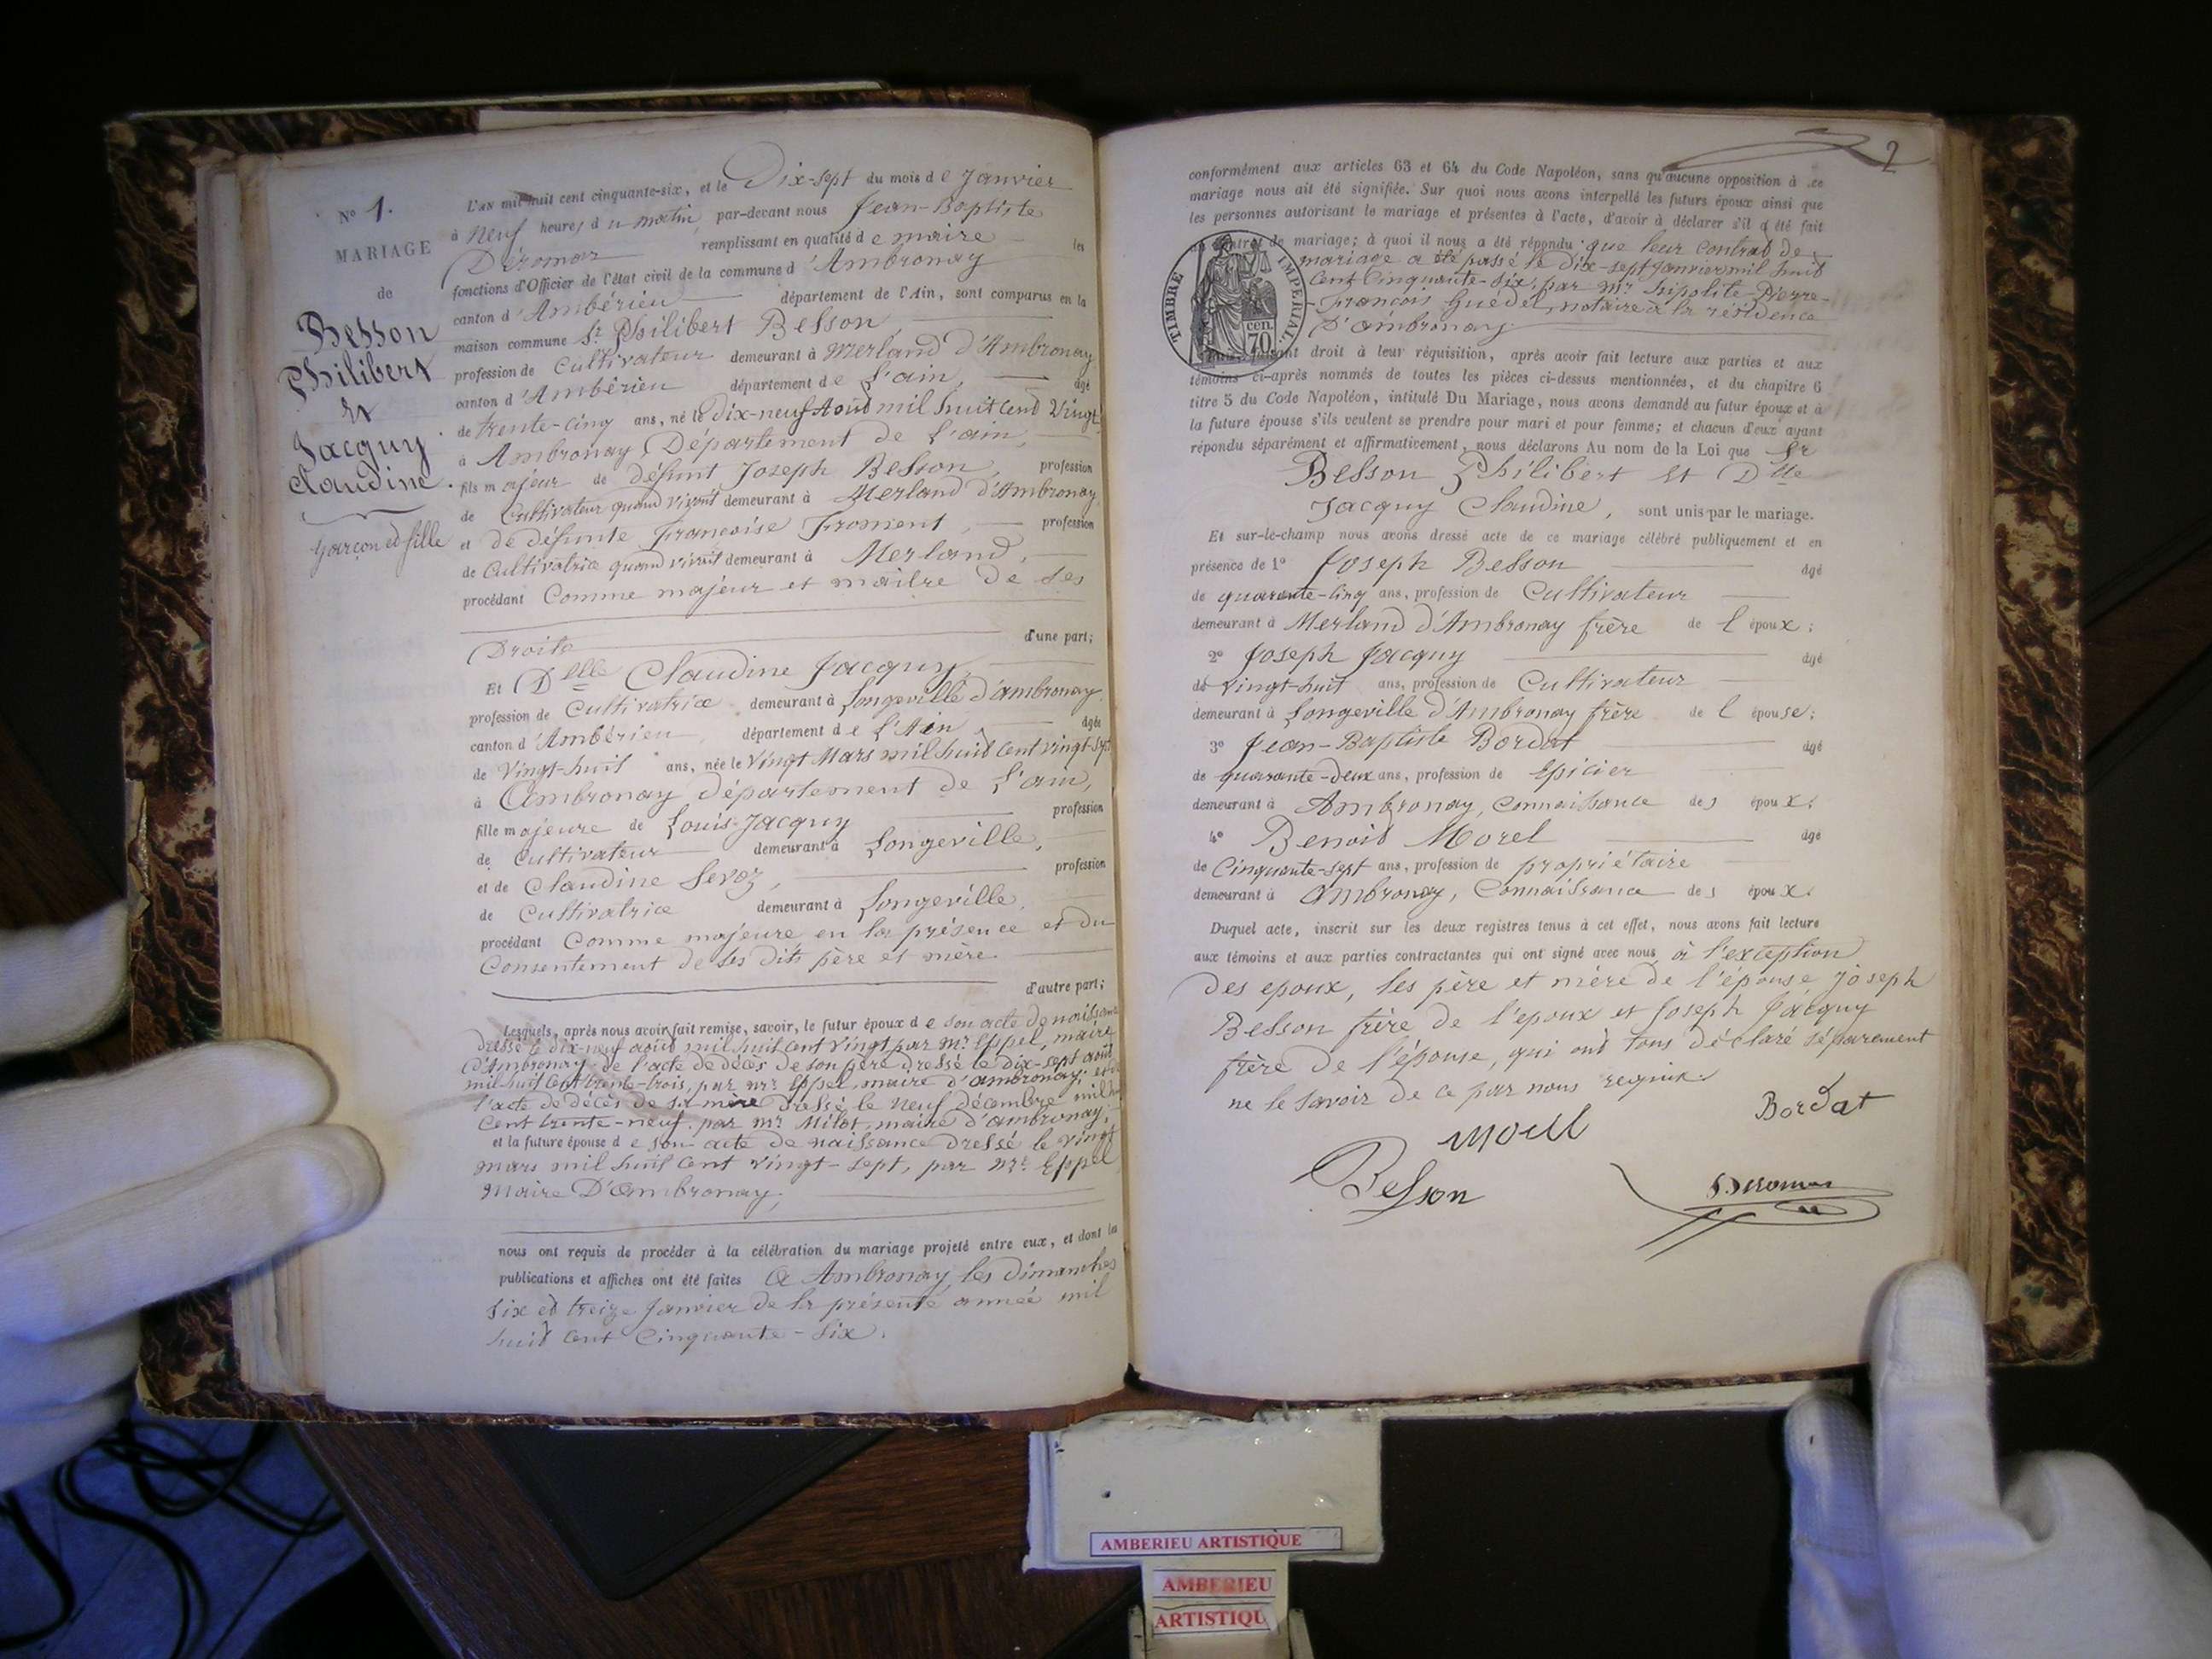 N° 1.
MARIAGE
de
Besson
Philibert
et
Jacquy
Claudine.
garçon et fille
L'AN mil huit cent cinquante-six, et le Dix-sept du mois de Janvier
à neuf heures du matin, par-devant nous Jean-Baptiste
Déromas remplissant en qualité de maire les
fonctions d'Officier de l'état civil de la commune d'Ambronay
canton d'Ambérieu département de l'Ain, sont comparus en la
maison commune Sr Philibert Besson,
profession de Cultivateur demeurant à Merland d'Ambronay
canton d'Ambérieu département de l'ain, âgé
de trente-cinq ans, né le Dix-neuf Août mil huit cent Vingt
à Ambronay, Département de l'ain,
fils majeur de défunt Joseph Besson, profession
de Cultivateur quand vivait demeurant à Merland d'Ambronay,
et de défunte françoise Froment, profession
de Cultivatrice quand vivait demeurant à Merland,
procédant Comme majeur et maître de ses
Droits d'une part;
Et Delle Claudine Jacquy,
profession de Cultivatrice demeurant à Longeville d'ambronay
canton d'Ambérieu, département de l'Ain, âgée
de Vingt-huit ans, née le Vingt Mars mil huit cent vingt-sept
à Ambronay département de l'ain,
fille majeure de Louis-Jacquy profession
de Cultivateur demeurant à Longeville,
et de Claudine Levoz, profession
de Cultivatrice demeurant à Longeville,
procédant Comme majeure en la présence et du
Consentement de ses dits père et mère.
d'autre part;
Lesquels, après nous avoir fait remise, savoir, le futur époux de son acte de naissance
dressé le dix-neuf août mil huit cent vingt par Mr Eppel, maire
d'Ambronay; de l'acte de décès de son père dressé le dix-sept août
mil huit cent trente-trois, par mr Eppel, maire d'ambronay; et de
l'acte de décès de sa mère dressé le neuf Décembre mil
Cent trente-neuf, par mr Milot, maire d'ambronay;
et la future épouse de son acte de naissance dressé le vingt
mars mil huit cent vingt-sept, par Mr Eppel
Maire D'Ambronay;
nous ont requis de procéder à la célébration du mariage projeté entre eux, et dont les
publications et affiches ont été faites à Ambronay, les dimanches
six et treize Janvier de la présente année mil
huit cent Cinquante-Six.
2
conformément aux articles 63 et 64 du Code Napoléon, sans qu'aucune opposition à ce
mariage nous ait été signifiée. Sur quoi nous avons interpellé les futurs époux ainsi que
les personnes autorisant le mariage et présentes à l'acte, d'avoir à déclarer s'il a été fait
de mariage; à quoi il nous a été répondu que leur Contrat de
mariage a été passé le Dix-sept Janvier mil huit
Cent Cinquante-Six, par mr hipolite-Pierre-
François Guedel, notaire à la résidence
D'ambronay.
TIMBRE IMPERIAL.
70 cen.
droit à leur réquisition, après avoir fait lecture aux parties et aux
témoins ci-après nommés de toutes les pièces ci-dessus mentionnées, et du chapitre 6
titre 5 du Code Napoléon, intitulé Du Mariage, nous avons demandé au futur époux et à
la future épouse s'ils veulent se prendre pour mari et pour femme; et chacun d'eux ayant
répondu séparément et affirmativement, nous déclarons Au nom de la Loi que Sr
Besson Philibert et Dlle
Jacquy Claudine, sont unis par le mariage.
Et sur-le-champ nous avons dressé acte de ce mariage célébré publiquement et en
présence de 1° Joseph Besson âgé
de quarante-cinq ans, profession de Cultivateur
demeurant à Merland d'Ambronay frère de l'époux;
2° Joseph Jacquy âgé
de vingt-huit ans, profession de Cultivateur
demeurant à Longeville d'Ambronay frère de l'épouse;
3° Jean-Baptiste Bordat âgé
de quarante-deux ans, profession de Epicier
demeurant à Ambronay, Connaissance des époux;
4° Benoit Morel âgé
de Cinquante-sept ans, profession de propriétaire
demeurant à Ambronay, Connaissance des époux.
Duquel acte, inscrit sur les deux registres tenus à cet effet, nous avons fait lecture
aux témoins et aux parties contractantes qui ont signé avec nous, à l'exception
des epoux, les père et mère de l'épouse, Joseph
Besson frère de l'epoux et Joseph Jacquy
frère de l'épouse, qui ont tous déclaré séparement
ne le savoir de ce par nous requis.
Bordat
Morel
Besson
Deromas
AMBERIEU ARTISTIQUE
AMBERIEU
ARTISTIQU